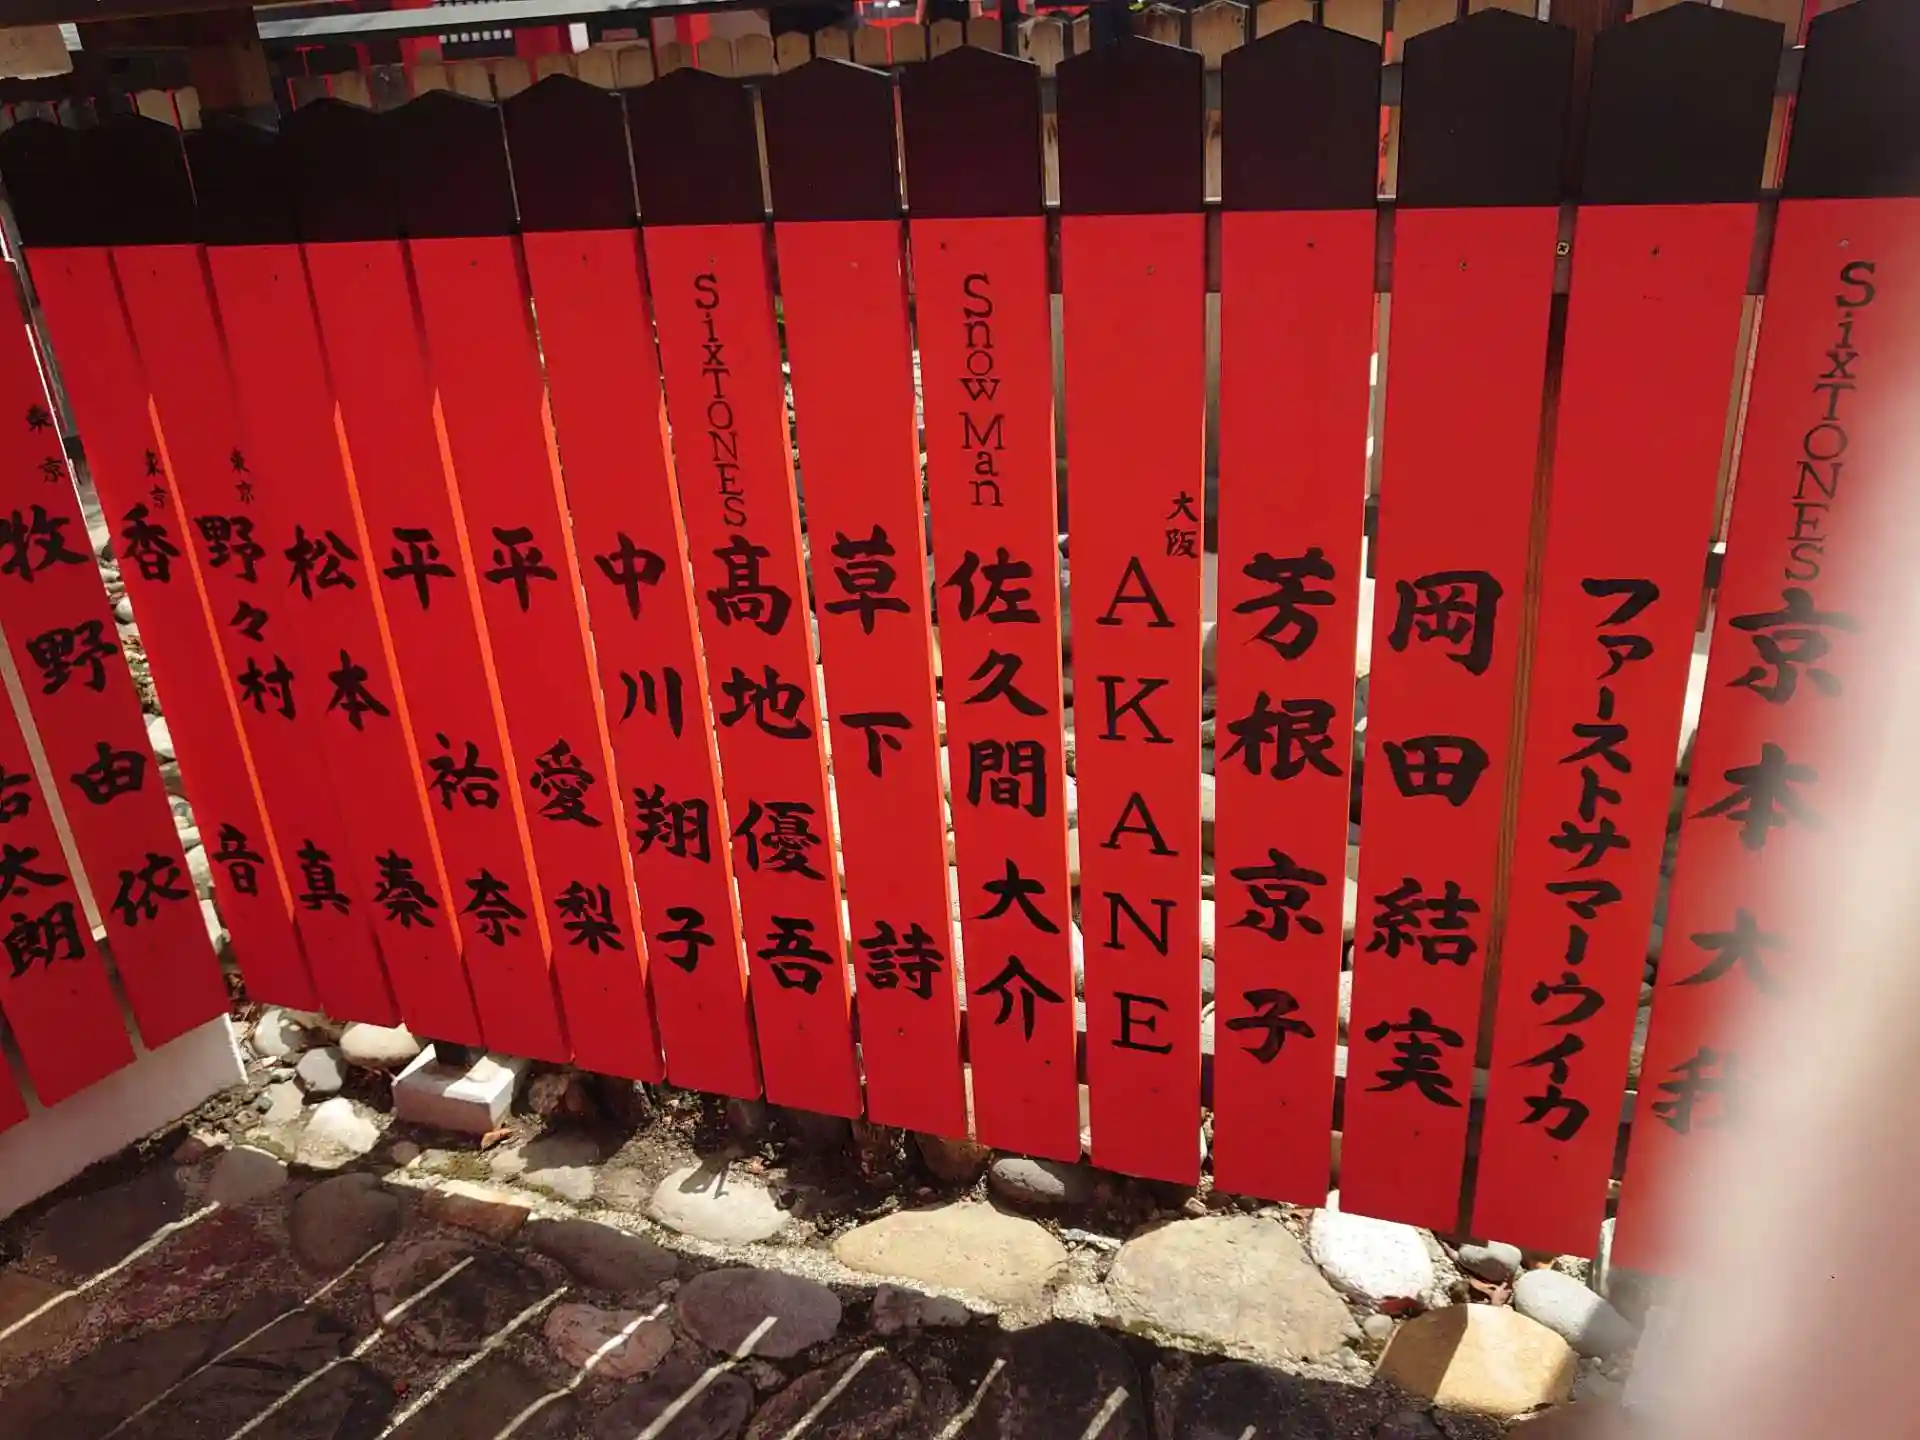 SixTONES
京本大我
ファーストサマーウイカ
岡田結実
芳根京子
大阪
AKANE
SnowMan
佐久間大介
草下詩
SixTONES
髙地優吾
中川翔子
平愛梨
平祐奈
松本秦
東京
野々村真
東京
香音
東京
牧野由依
太朗